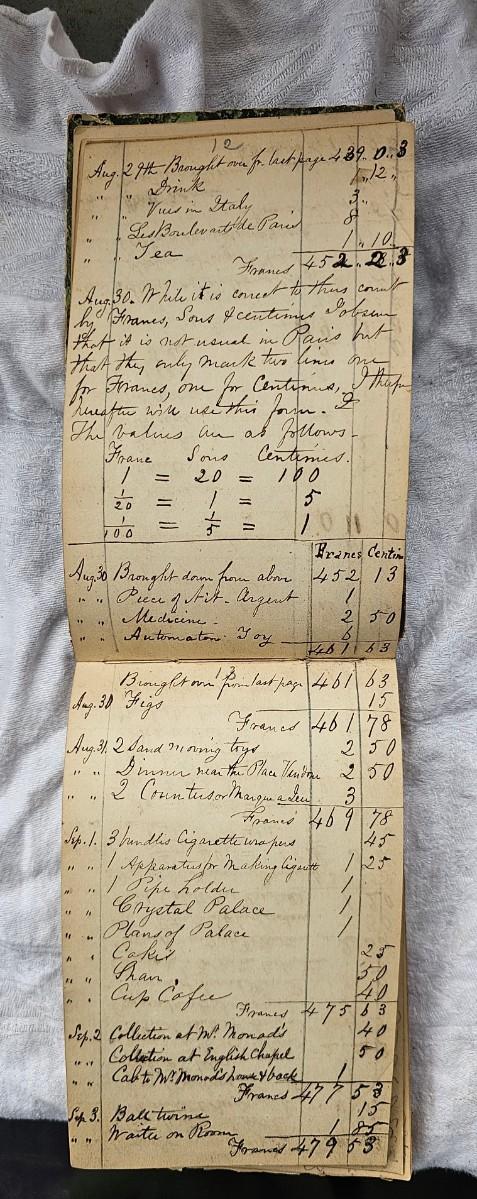 12
Aug. 29th Brought over fr. last page 439 " 0 " 3
" " Drink 1 " 12 "
" " Vues in Italy 3 "
" " Les Boulevarts de Paris 8 "
" " Tea 1 " 10
Francs 452 " 2 " 3
Aug. 30. While it is correct to thus count
by Francs, Sous & centimes I observe
that it is not usual in Paris but
that they only mark two lines one
for Francs, one for Centimes, I
hereafter will use this form.
The values are as follows.
Franc Sous Centimes.
1 = 20 = 100
1/20 = 1 = 5
1/100 = 1/5 = 1
Francs Centim
Aug 30 Brought down from above 452 13
" " Piece of Nit. Argent 1
" " Medicine 2 50
" " Automaton Toy 6
461 63
13
Brought over from last page 461 63
Aug. 30 Figs 15
Francs 461 78
Aug. 31. 2 Sand moving toys 2 50
" " Dinner near the Place Vendome 2 50
" " 2 Counters or 3
Francs 469 78
Sep. 1. 3 bundles Cigarette wrapers 45
" " 1 Apparatus for Making Cigarett 1 25
" " 1 Pipe holder 1
" " Crystal Palace 1
" " Plans of Palace 1
" " Cakes 25
" " Shav. 50
" " Cup Cofee 40
Francs 475 63
Sep. 2 Collection at Mr. Monad's 40
" " Collection at English Chapel 50
" " Cab to Mr Monod's house & back 1
Francs 477 53
Sep. 3. Ball twine 15
" " Waiter on Room 1 85
Francs 479 53